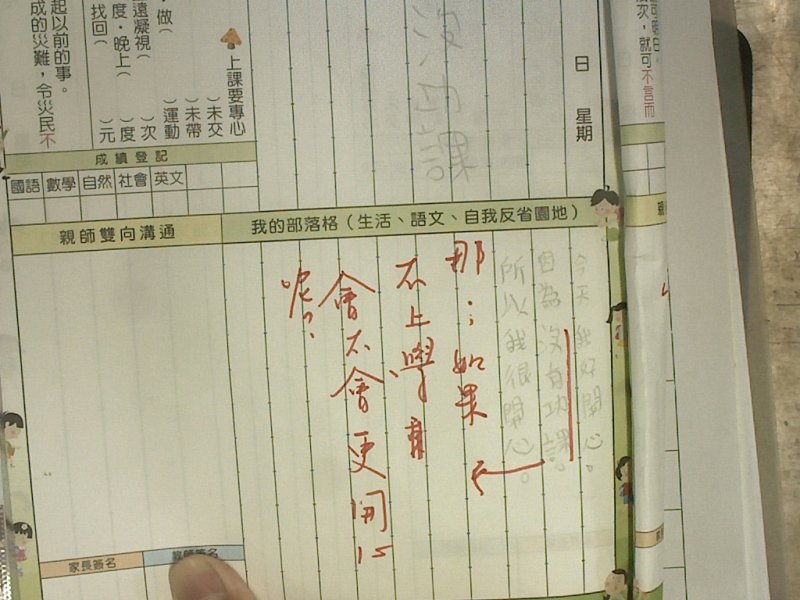 日 星期
沒功課
上課要專心
）未交
）未帶
做（ ）運動
遠凝視（ ）次
度・晚上（ ）度
找回（ ）元
起以前的事。
成的災難，令災民不
次，就可不言而
成績登記
國語 數學 自然 社會 英文
我的部落格（生活、語文、自我反省園地）
今天我好開心。
因為沒有功課。
所以我很開心。
那；如果
不上學、
會不會更開心
呢？
親師雙向溝通
家長簽名
教師簽名